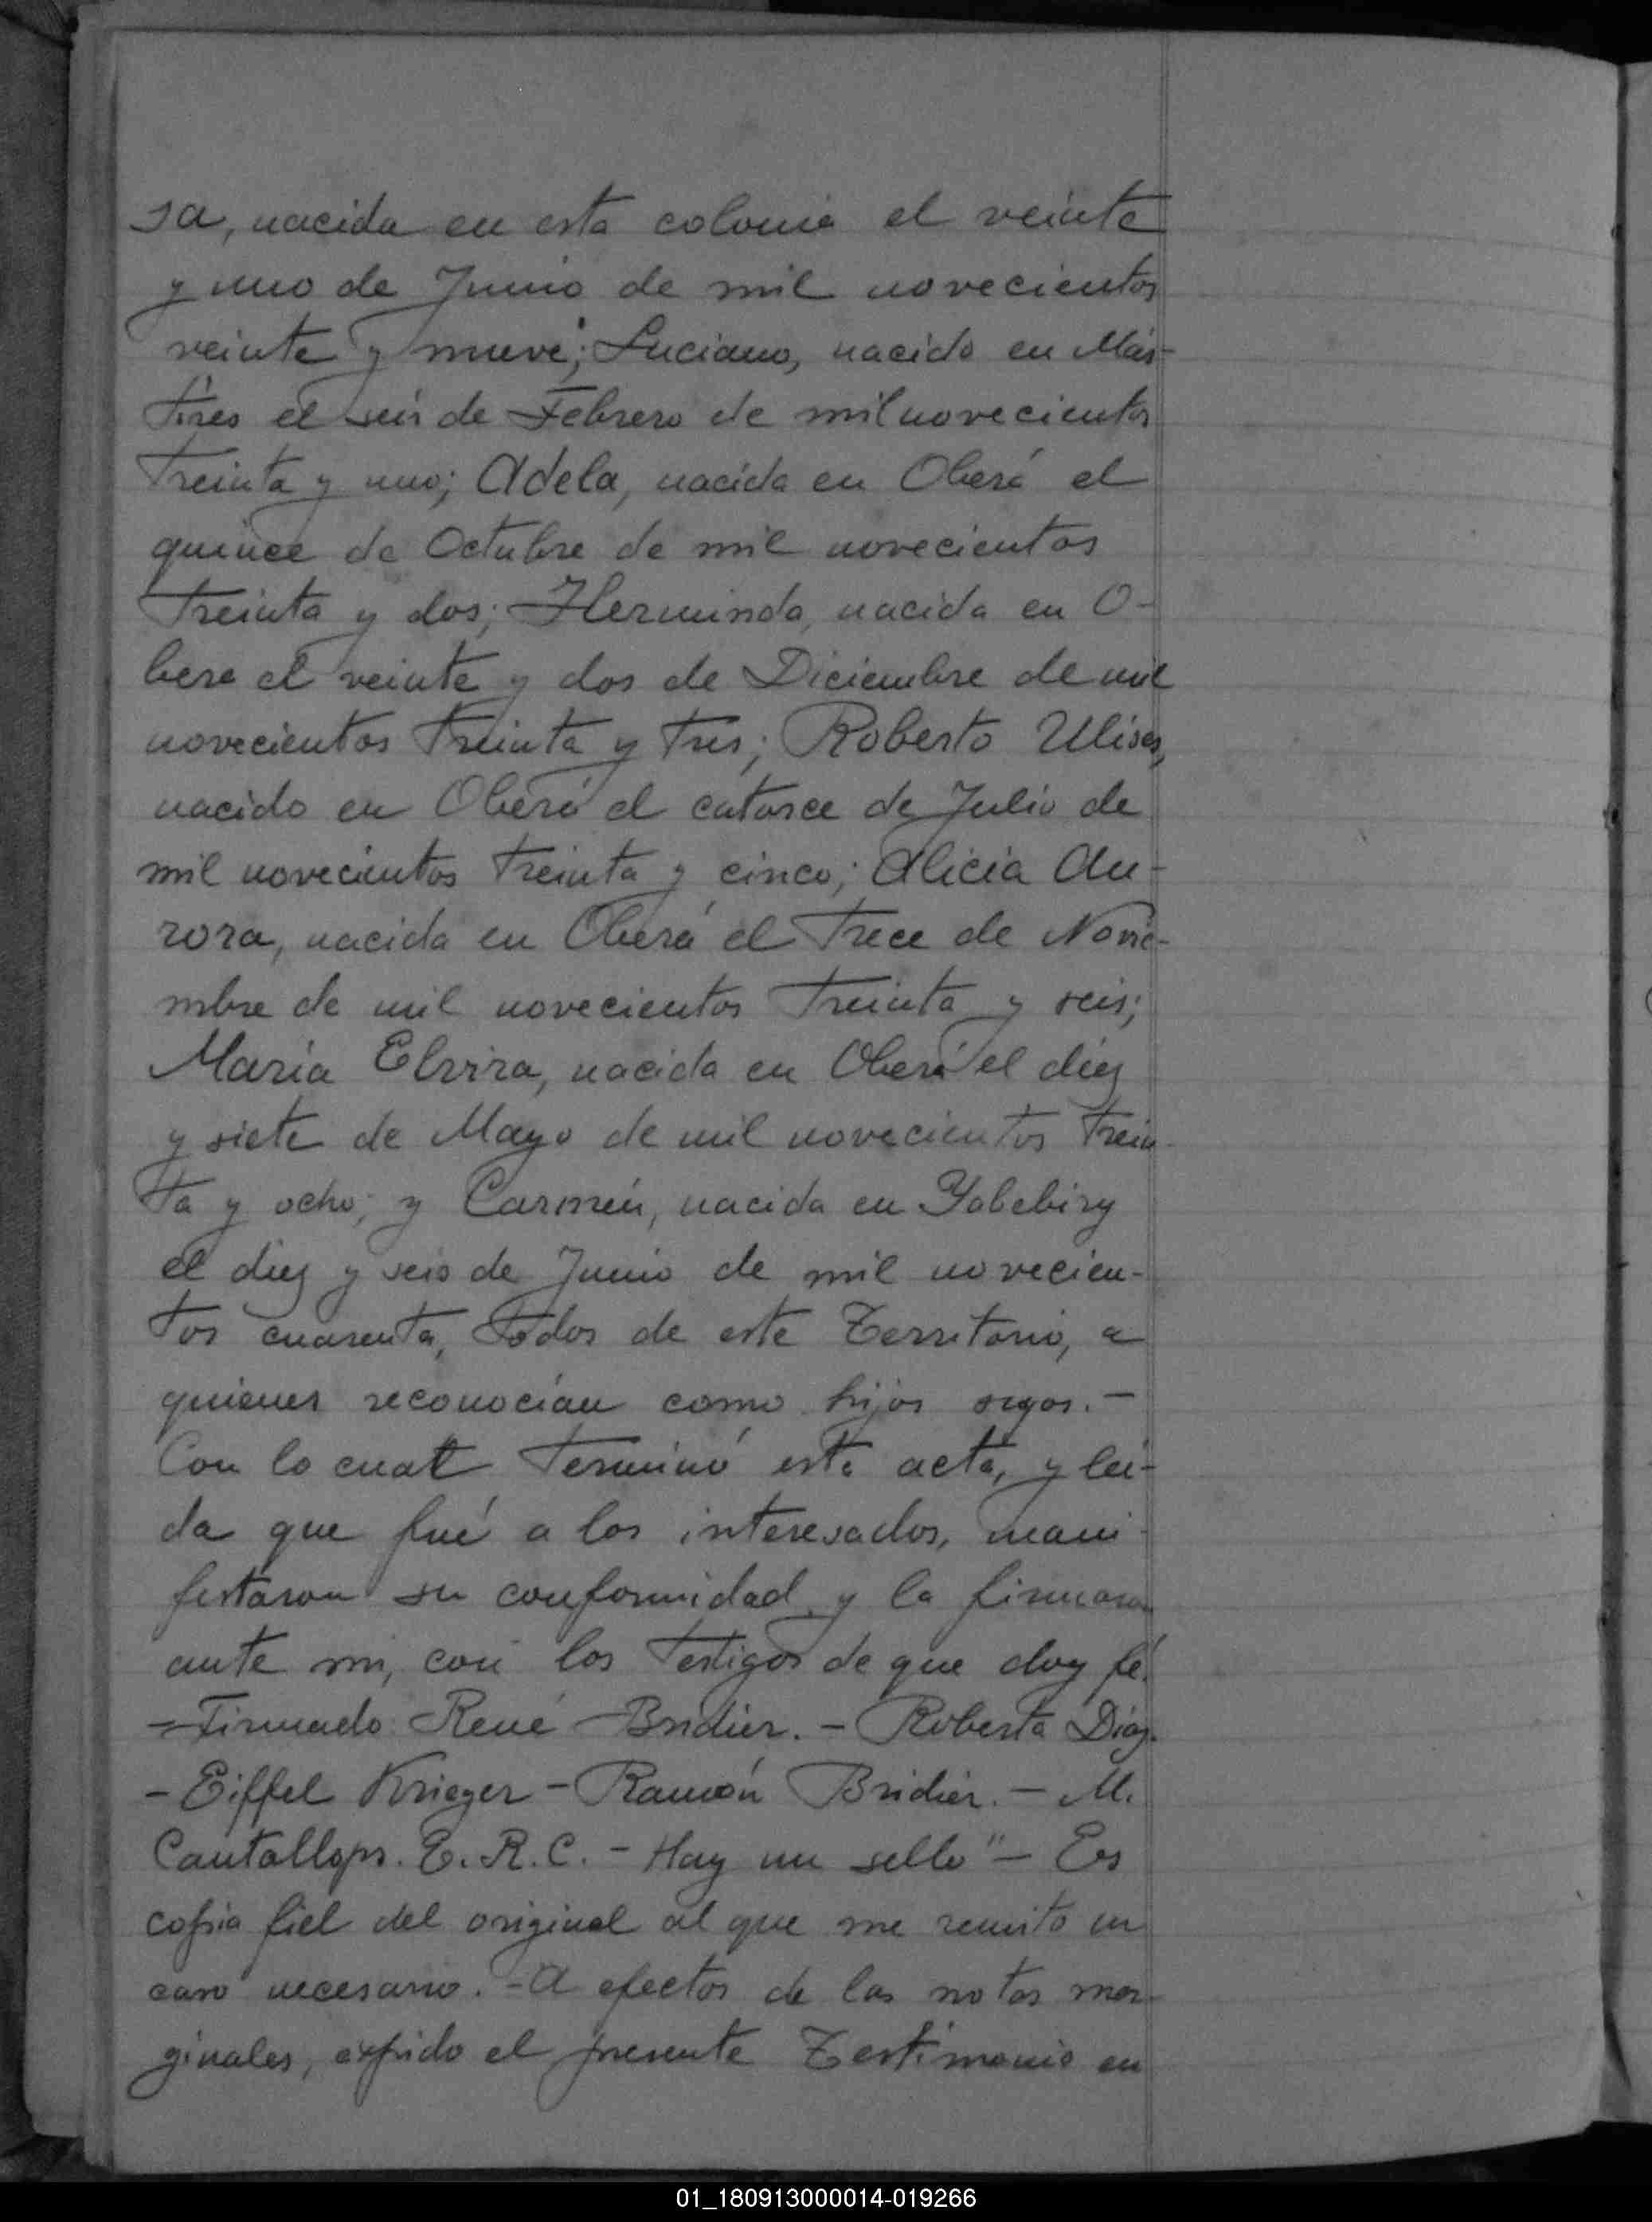 sa, nacida en esta colonia el veinte
y uno de Junio de mil novecientos
veinte y nueve; Luciano, nacido en Már-
tires el seis de Febrero de mil novecientos
treinta y uno; Adela, nacida en Oberá el
quince de Octubre de mil novecientos
treinta y dos; Herminda, nacida en O-
bera el veinte y dos de Diciembre de mil
novecientos treinta y tres; Roberto Ulises,
nacido en Oberá el catorce de Julio de
mil novecientos treinta y cinco; Alicia Au-
rora, nacida en Oberá el trece de Novie-
mbre de mil novecientos treinta y seis;
María Elvira, nacida en Oberá el diez
y siete de Mayo de mil novecientos trein-
ta y ocho; y Carmén, nacida en Yabebiry
el diez y seis de Junio de mil novecien-
tos cuarenta, todos de este Territorio, a
quienes reconocían como hijos suyos.-
Con lo cual terminó esta acta, y leí-
da que fué a los interesados, mani-
festaron su conformidad y la firmaron
ante mi, con los testigos de que doy fé.
=Firmado: René Bridier.- Roberta Díaz.
- Eiffel Krieger - Ramón Bridier. - M.
Cantallops. E. R. C. - Hay un sello"- Es
copia fiel del original al que me remito en
caso necesario. - A efectos de las notas mar-
ginales, expido el presente Testimonio en
01_180913000014-019266